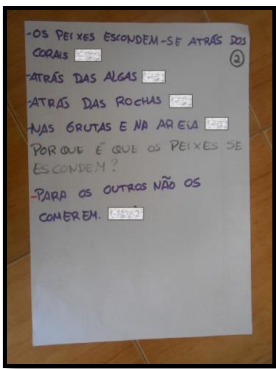 -OS PEIXES ESCONDEM-SE ATRÁS DOS
CORAIS
②
-ATRÁS DAS ALGAS
-ATRÁS DAS ROCHAS
-NAS GRUTAS E NA AREIA
POR QUE É QUE OS PEIXES SE
ESCONDEM?
-PARA OS OUTROS NÃO OS
COMEREM.